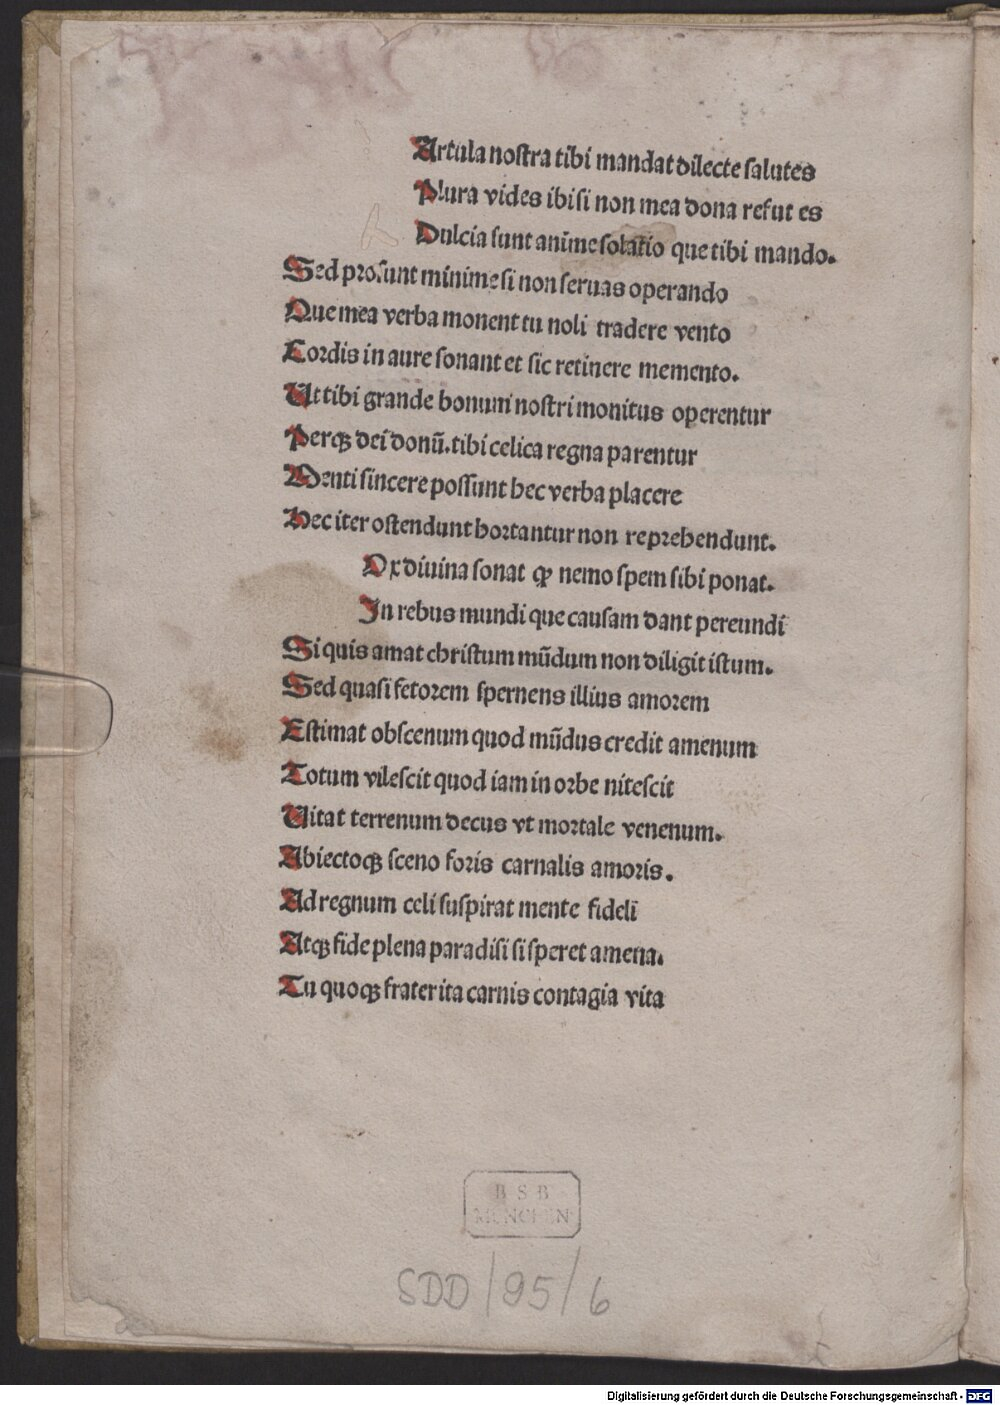 Artula nostra tibi mandat dilecte salutes
Plura vides ibi si non mea dona refut es
Dulcia sunt anime solatio que tibi mando.
Sed prosunt minime si non seruas operando
Que mea verba monent tu noli tradere vento
Cordis in aure sonant et sic retinere memento.
Ut tibi grande bonum nostri monitus operentur
Perqꝫ dei donū. tibi celica regna parentur
Menti sincere possunt hec verba placere
Hec iter ostendunt hortantur non reprehendunt.
Ox diuina sonat ꝙ nemo spem sibi ponat.
In rebus mundi que causam dant pereundi
Si quis amat christum mūdum non diligit istum.
Sed quasi fetorem spernens illius amorem
Estimat obscenum quod mūdus credit amenum
Totum vilescit quod iam in orbe nitescit
Uitat terrenum decus vt mortale venenum.
Abiectoqꝫ sceno foris carnalis amoris.
Ad regnum celi suspirat mente fideli
Atqꝫ fide plena paradisi si speret amena.
Tu quoqꝫ frater ita carnis contagia vita
B S B
MÜNCHEN
SDD/95/6
Digitalisierung gefördert durch die Deutsche Forschungsgemeinschaft - DFG